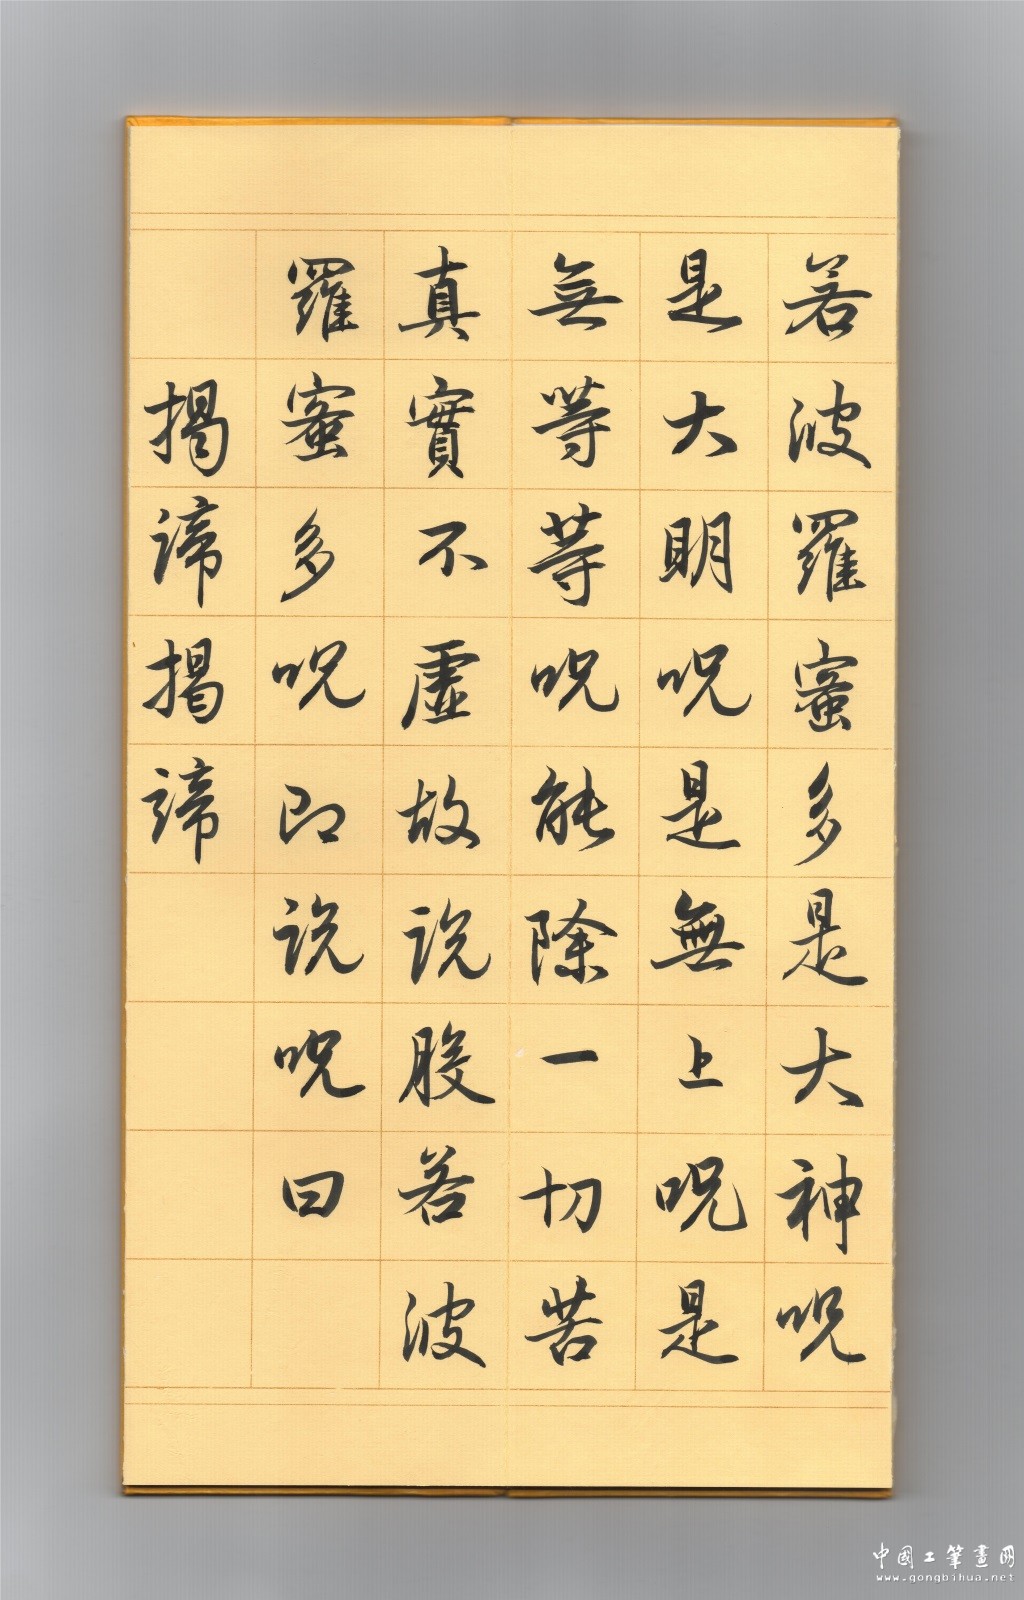 若波羅蜜多是大神呪
是大明呪是無上呪是
無等等呪能除一切苦
真實不虛故說般若波
羅蜜多呪即說呪曰
揭諦揭諦
中國工筆畫网
www.gongbihua.net